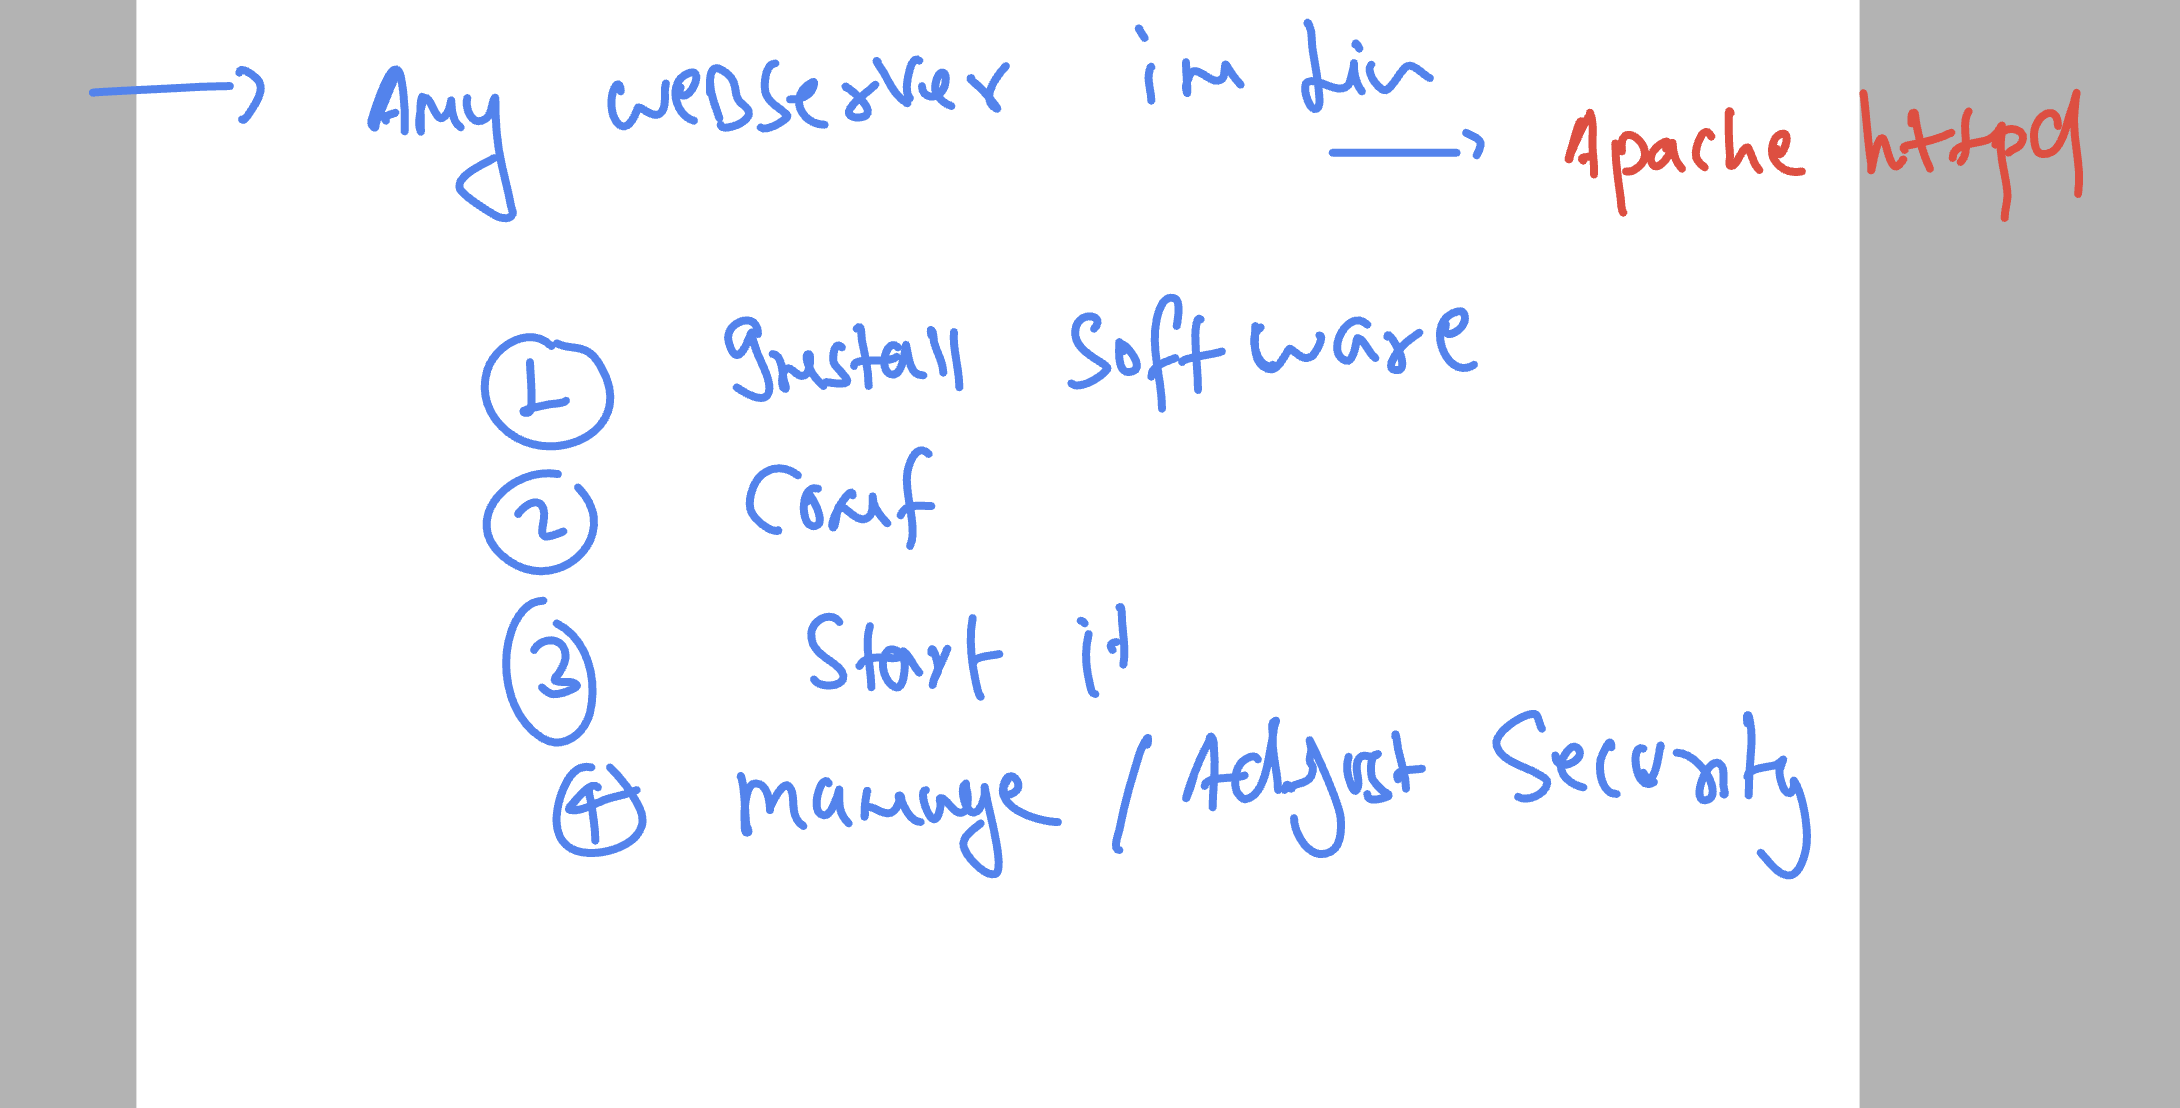 → Any webserver in Lin
→ Apache httpd
1 Install Software
2 Conf
3 Start it
4 manage / Adjust Security